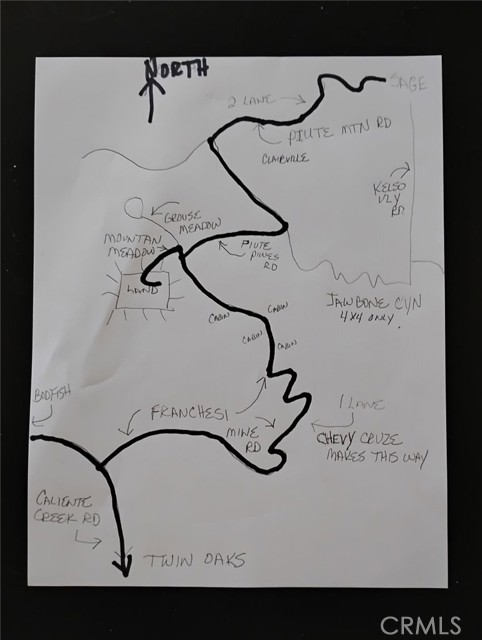 NORTH
SAGE
2 LANE
PIUTE MTN RD
CLARVILLE
KELSO
VLY
RD
GROUSE
MEADOW
MOUNTAN
MEADOW
PIUTE
PINES
RD
LAND
JAWBONE CYN
4X4 ONLY.
CABIN
CABIN
CABIN
CABIN
BODFISH
FRANCHESI
MINE
RD
1 LANE
CHEVY CRUZE
MAKES THIS WAY
CALIENTE
CREEK RD
TWIN OAKS
CRMLS